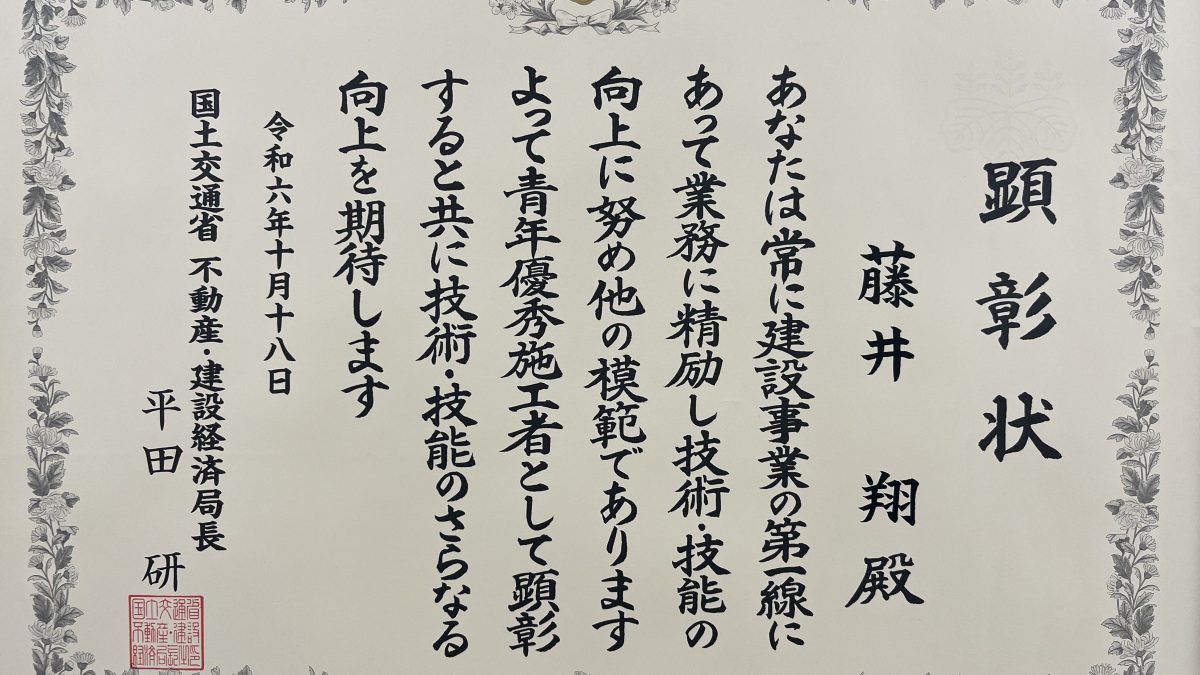 顕彰状
藤井 翔 殿
あなたは常に建設事業の第一線に
あって業務に精励し技術・技能の
向上に努め他の模範であります
よって青年優秀施工者として顕彰
すると共に技術・技能のさらなる
向上を期待します
令和六年十月十八日
国土交通省 不動産・建設経済局長
平田 研